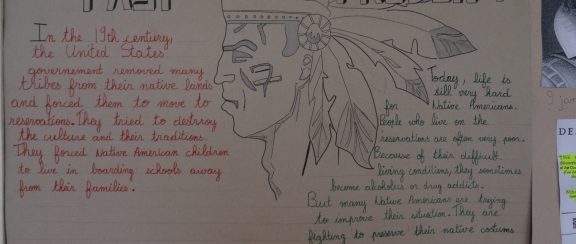 PAST
PRESENT
In the 19th century,
the United States'
governement removed many
tribes from their native lands
and forced them to move to
reservations. They tried to destroy
the culture and their traditions.
They forced Native American children
to live in boarding schools away
from their families.
Today, life is
still very hard
for Native Americans.
People who live on the
reservations are often very poor.
Because of their difficult
living conditions, they sometimes
become alcoholics or drug addicts.
But many Native Americans are trying
to improve their situation. They are
fighting to preserve their native customs
9 jan
DE